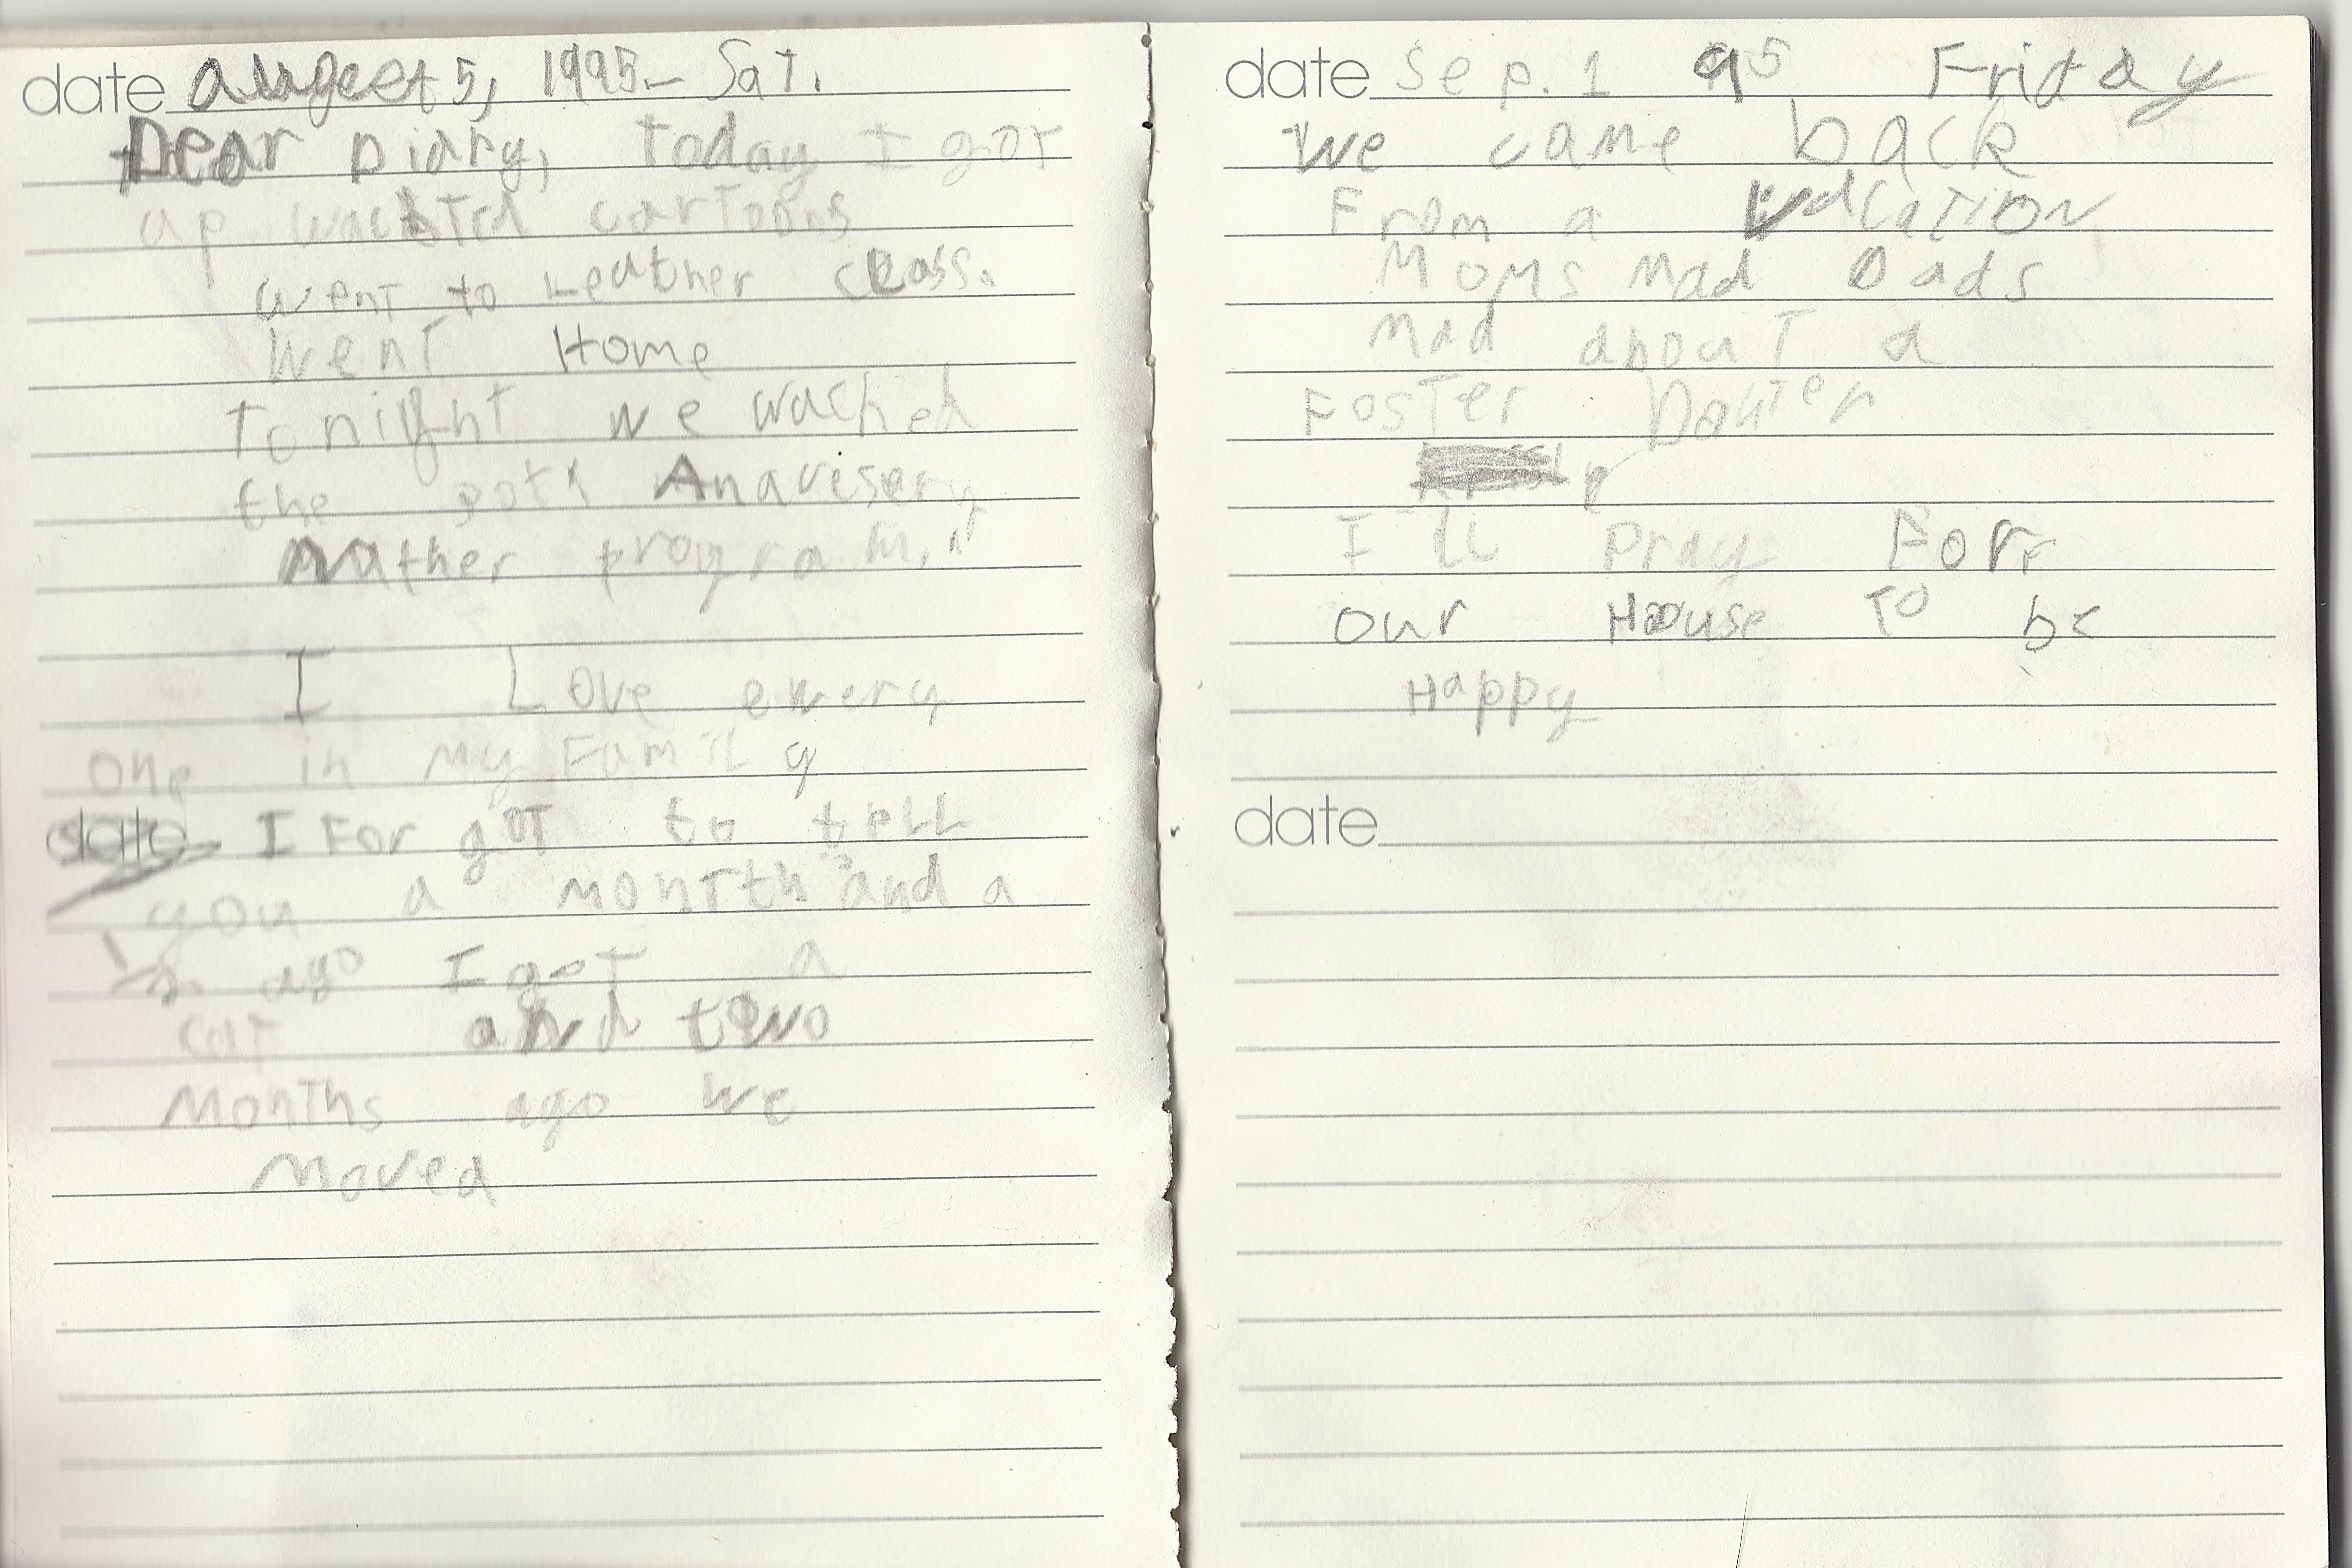 date augest 5, 1995- Sat.
Dear Diary, today I got
up wachted cartoons
went to Leather class.
Went Home
Tonight we wached
the Anavisery
Nather program.
I Love every
one in my FamiLy
date I For got to tell
you a month and a
1/2 ago I got a
cat and two
Months ago we
Moved
date Sep. 1 95 Friday
We came back
From a vacation
Moms Mad Dads
Mad about a
Foster Douter
I'll Pray For
our House to be
Happy
date